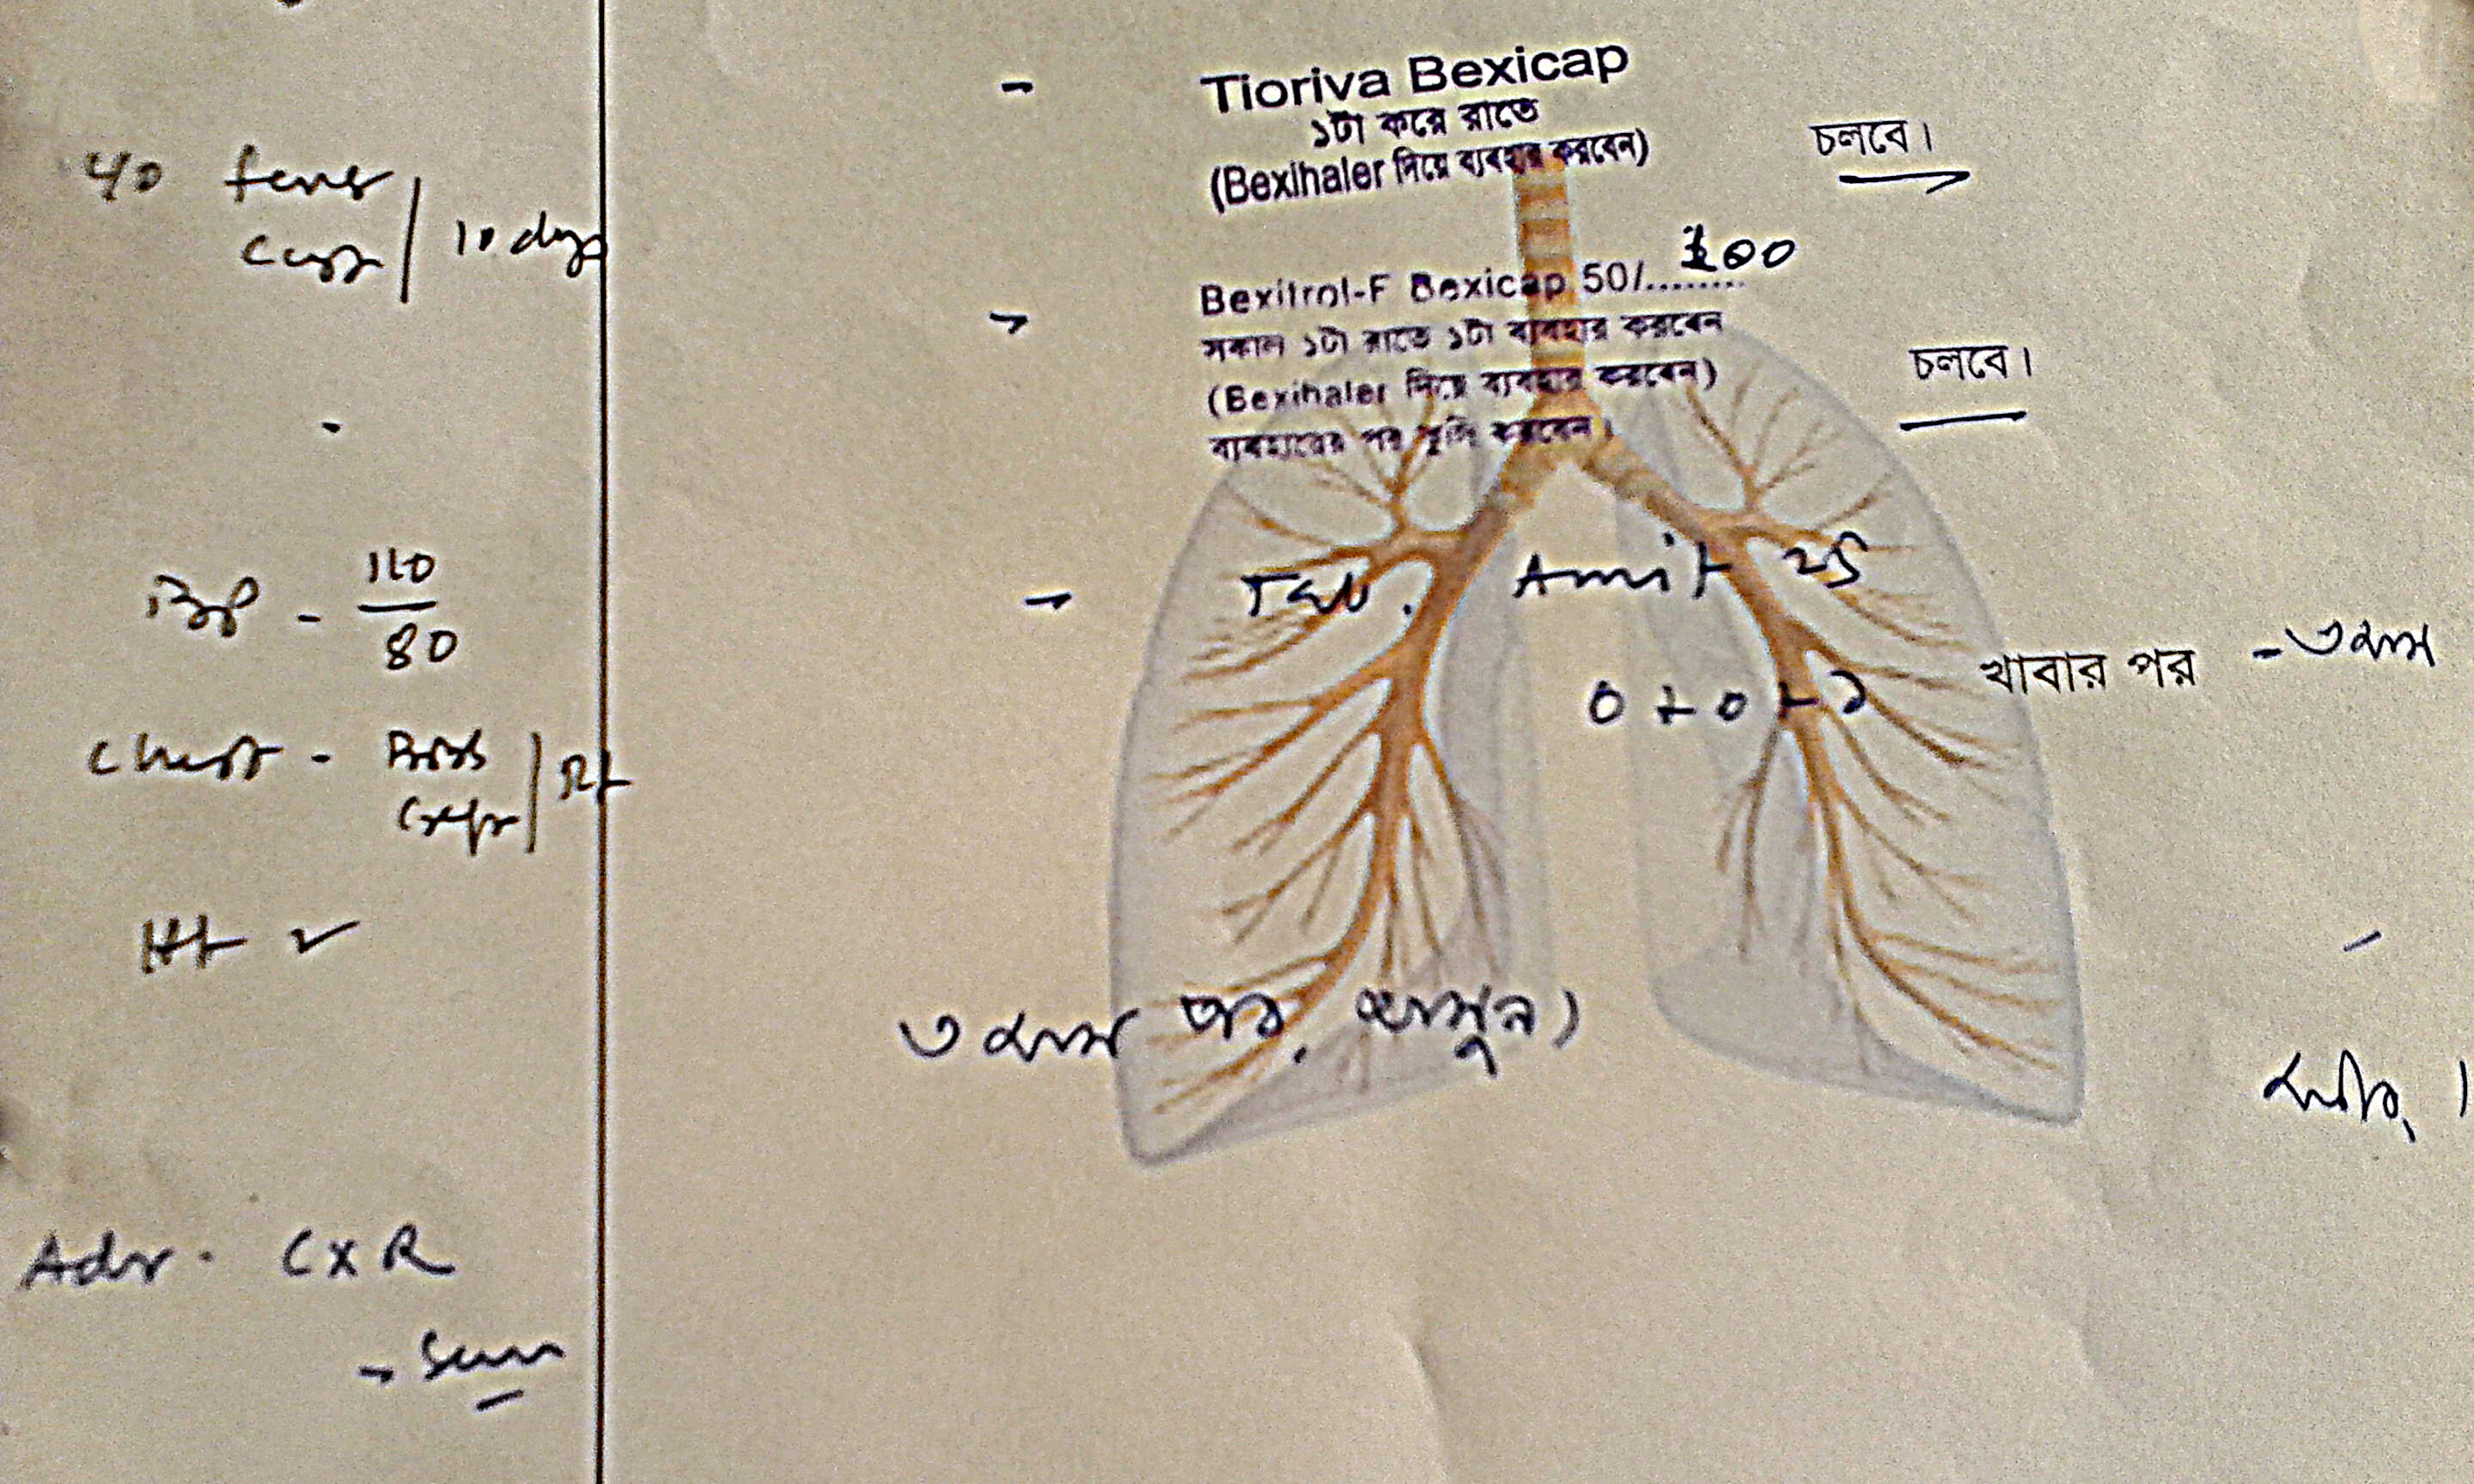 C/O fever
Cough / 10 days
BP - 110
80
Chest - 
Ht ✓
Adv. CXR
- Tioriva Bexicap
১টা করে রাতে
(Bexihaler দিয়ে ব্যবহার করবেন)
চলবে।
Bexitrol-F Bexicap 50/........ 100
সকাল ১টা রাতে ১টা ব্যবহার করবেন
(Bexihaler দিয়ে ব্যবহার করবেন)
ব্যবহারের পর কুলি করবেন।
চলবে।
- Tab. Amit 25
0 + 0 + ১
খাবার পর - ৩ মাস
৩ মাস পর, আসুন।